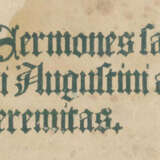 Sermones sa
i Augustini a
eremitas.